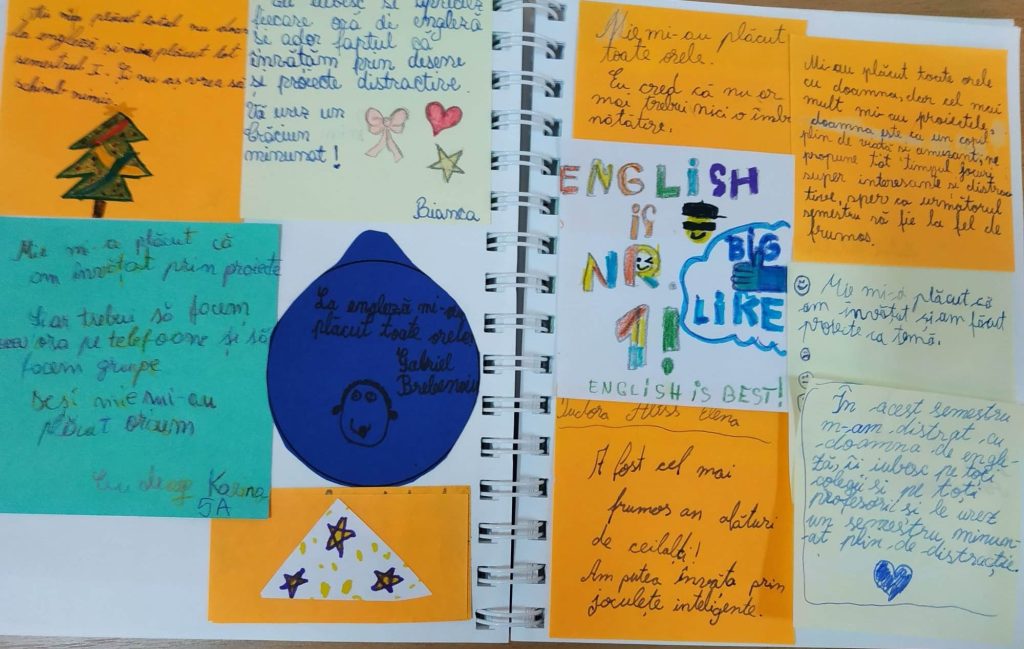 plăcut totul nu doar
la engleză și mi-a plăcut tot
semestrul I. Și nu aș vrea să
schimb nimic
iubesc
fiecare oră de engleză
și ador faptul că
învătăm prin desene
și proiecte distractive.
Vă urez un
Crăciun
minunat!
Bianca
Mie mi-a plăcut că
am învățat prin proiecte
ar trebui să facem
ora pe telefoane și să
facem grupe
mi-au
plăcut oricum
Karina
5A
La engleză mi-au
plăcut toate orele
Gabriel
Mie mi-au plăcut
toate orele.
Eu cred că nu ar
mai trebui nici o îmbu
nătățire.
ENGLISH
is
NR.
1!
BIG
LIKE
ENGLISH IS BEST!
Mi-au plăcut toate orele
cu doamna, doar cel mai
mult mi-au proiectele,
doamna este ca un copil
plin de viață si amuzant, ne
propune tot timpul jocuri
super interesante si distrac
tive, sper ca următorul
semestru să fie la fel de
frumos.
Mie mi-a plăcut că
am învătat și am făcut
proiecte ca temă.
Tudora Elena
A fost cel mai
frumos an alături
de ceilalți!
Am putea învăța prin
joculețe inteligente.
În acest semestru
m-am distrat cu
doamna de engle-
ză, îi iubesc pe toți
colegii si pe toți
profesorii si le urez
un semestru minun-
at plin de distracție.